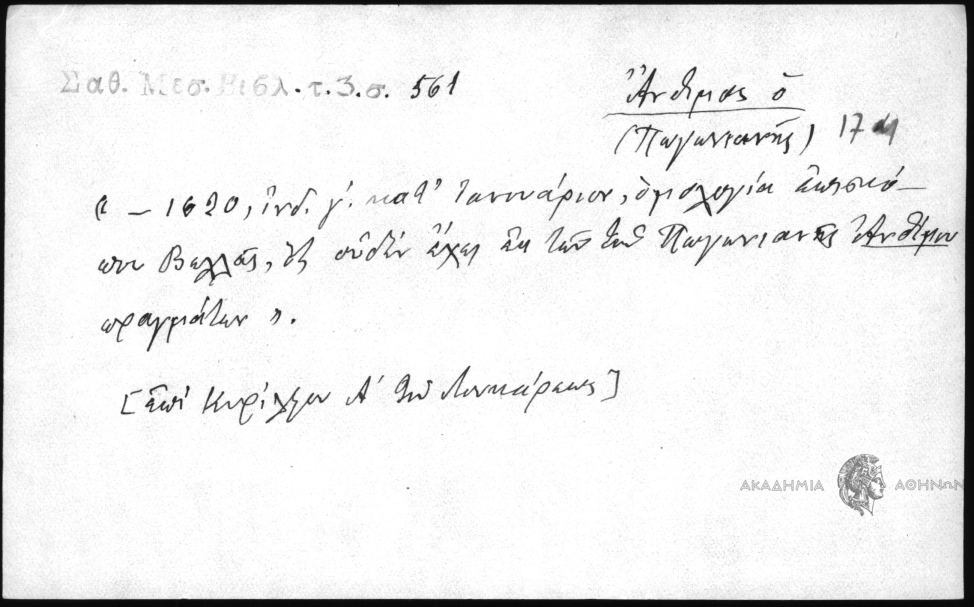 Σαθ. Μεσ. Βιβλ. τ. 3. σ. 561
Ἄνθιμος ὁ
(Πωγωνιανῆς) 17
« – 1620, ἰνδ. γ΄. κατ᾽ Ἰαννουάριον, ὁμολογία ἐπισκό–
που Βελλᾶς, ὅτι οὐδὲν ἔχει ἐκ τῶν τοῦ Πωγωνιανῆς Ἀνθίμου
πραγμάτων ».
[ἐπὶ Κυρίλλου Α΄ τοῦ Λουκάρεως]
ΑΚΑΔΗΜΙΑ ΑΘΗΝΩΝ